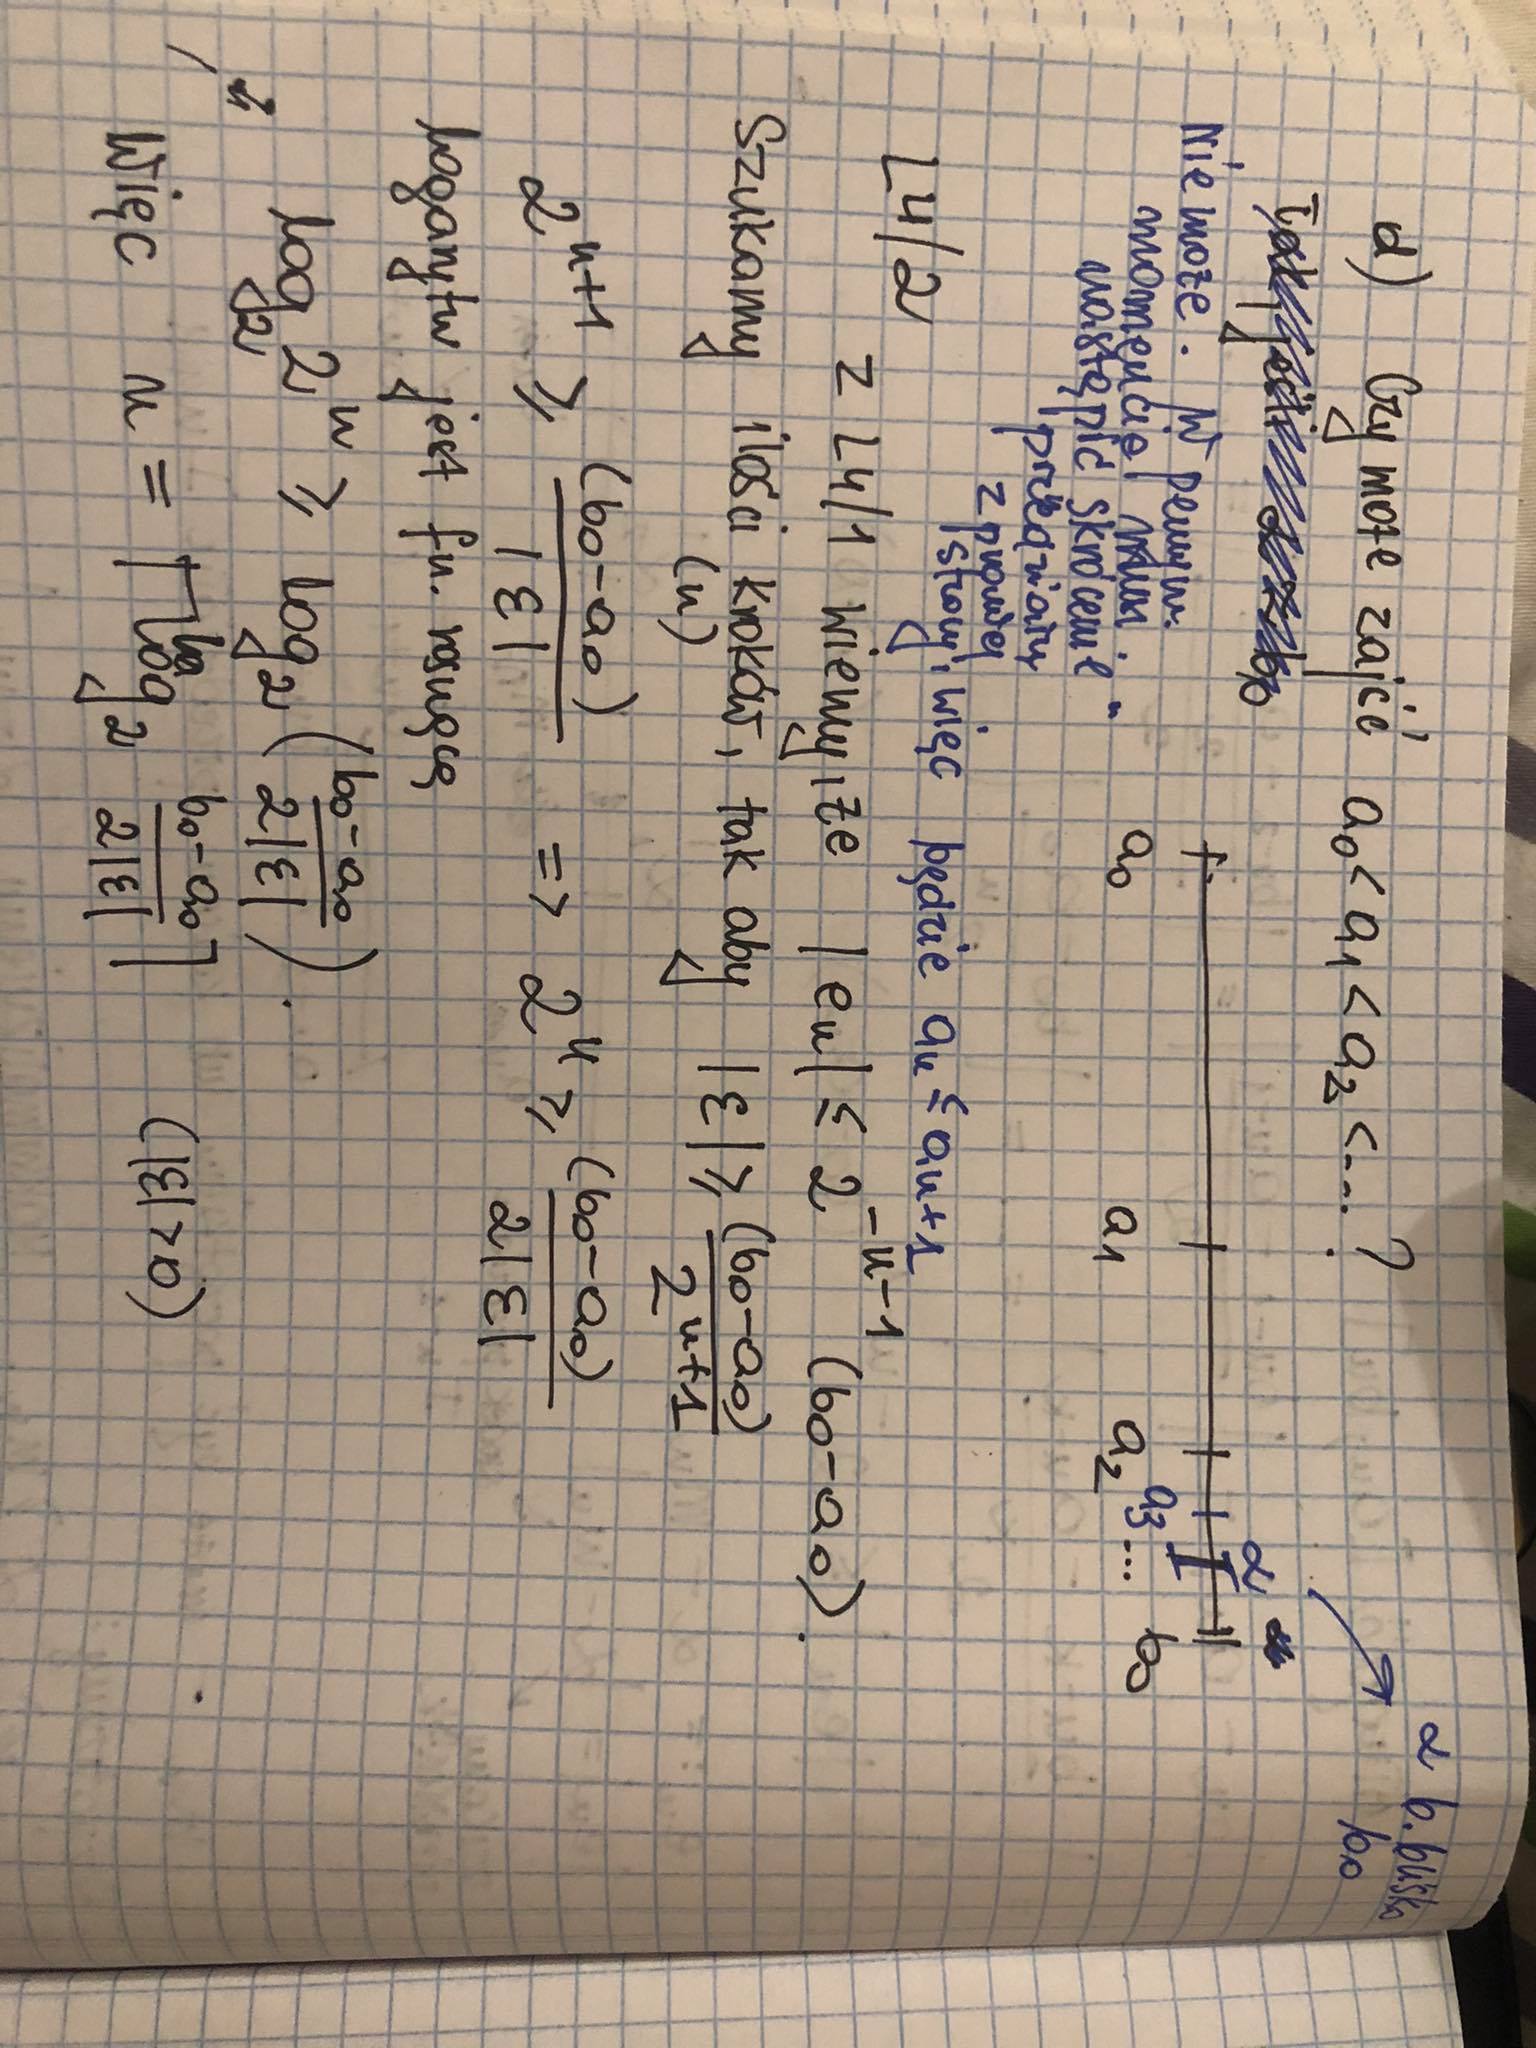 d) Czy może zajść a₀ < a₁ < a₂ < .... ?
Tak, jeśli α = b₀
α b. blisko
b₀
Nie może. W pewnym
momencie musi
nastąpić skrócenie
przedziału
z prawej
strony, więc będzie aₙ ≤ aₙ₊₁
α
a₀ a₁ a₂ a₃ ... b₀
L4/2
z L4/1 wiemy, że |eₙ| ≤ 2⁻ⁿ⁻¹ (b₀-a₀).
Szukamy ilości kroków, tak aby |ε| ≥ (b₀-a₀)/2ⁿ⁺¹
(n)
2ⁿ⁺¹ ≥ (b₀-a₀)/|ε| => 2ⁿ ≥ (b₀-a₀)/2|ε|
logarytm jest fn. rosnącą
log₂ 2ⁿ ≥ log₂ (b₀-a₀/2|ε|).
Więc n = ⌈log₂ b₀-a₀/2|ε|⌉ (|ε|>0)